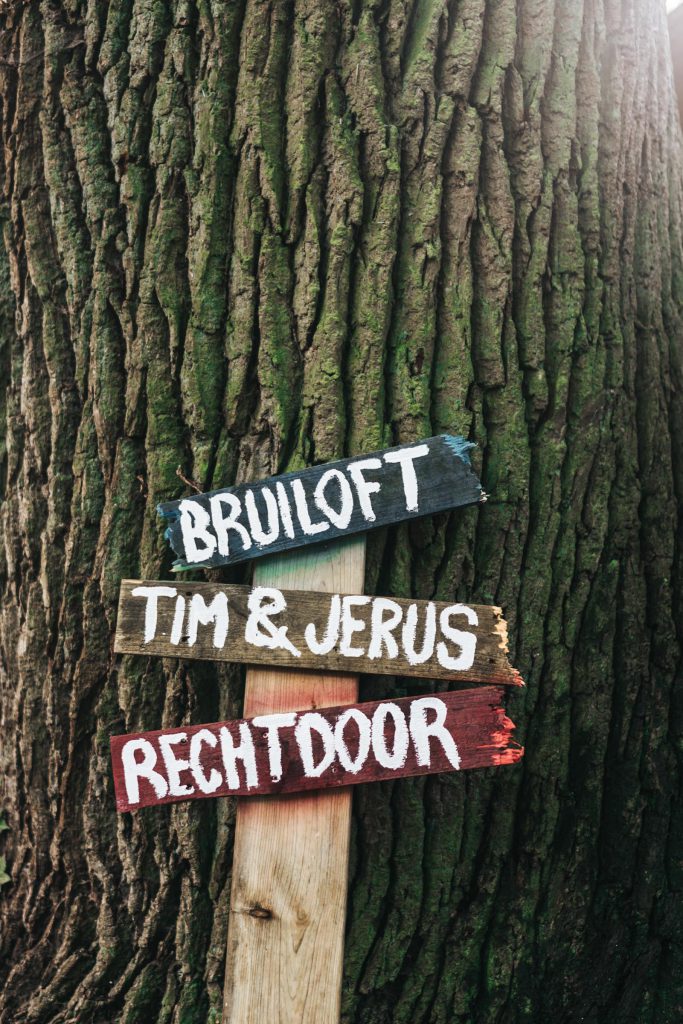 BRUILOFT
TIM & JERUS
RECHTDOOR